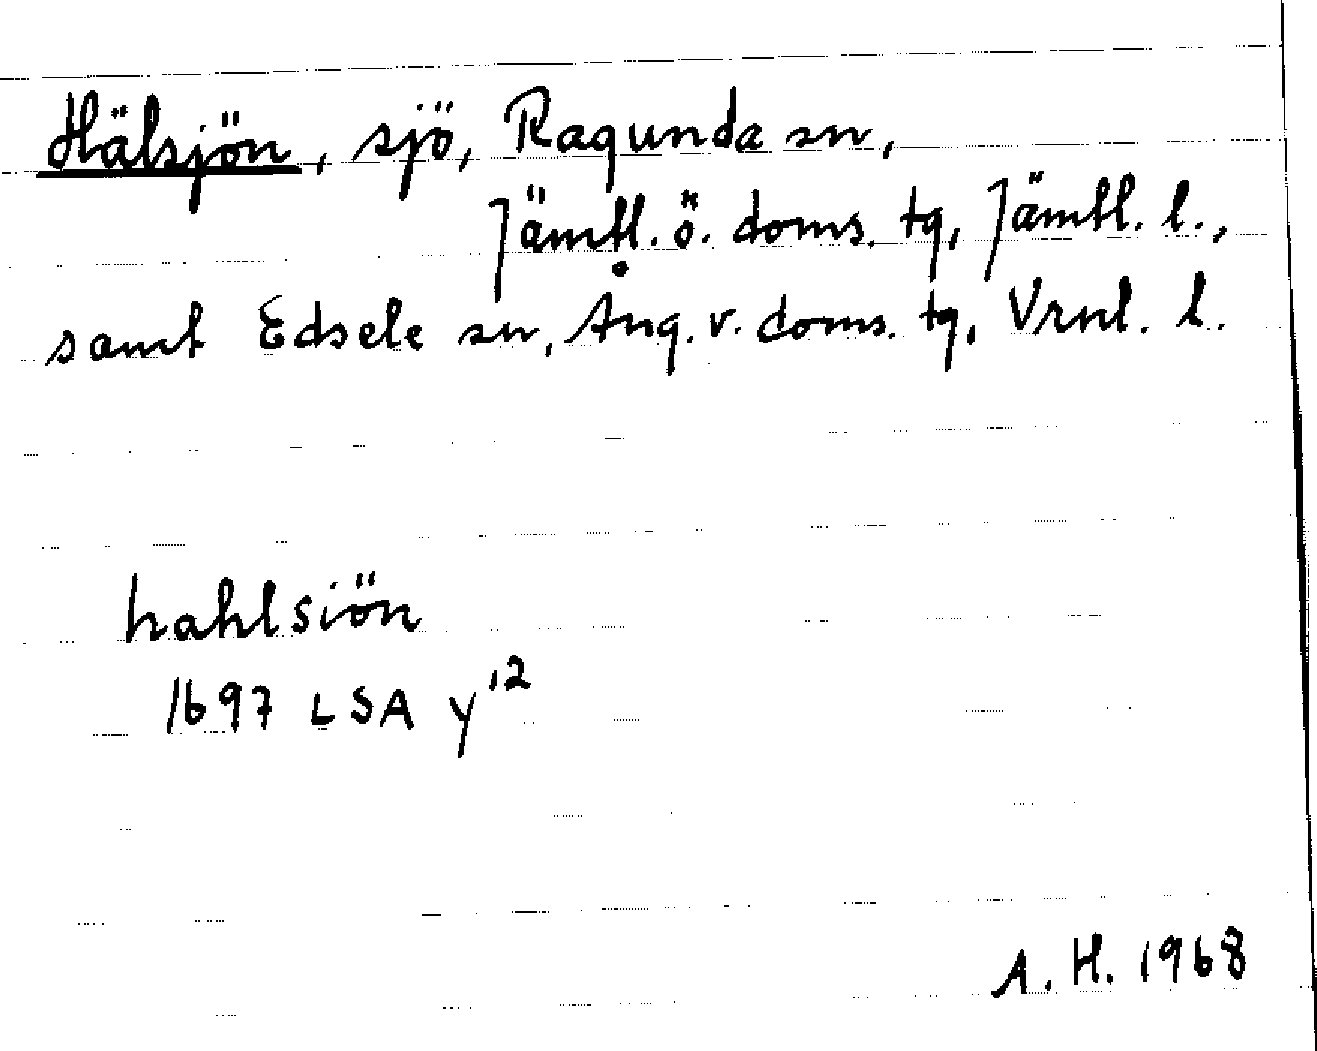 Hälsjön, sjö, Ragunda sn,
Jämtl. ö. doms. tg, Jämtl. l.,
samt Edsele sn, Ång. v. doms. tg, Vrnl. l.
hahlsiön
1697 LSA y¹²
A. H. 1968